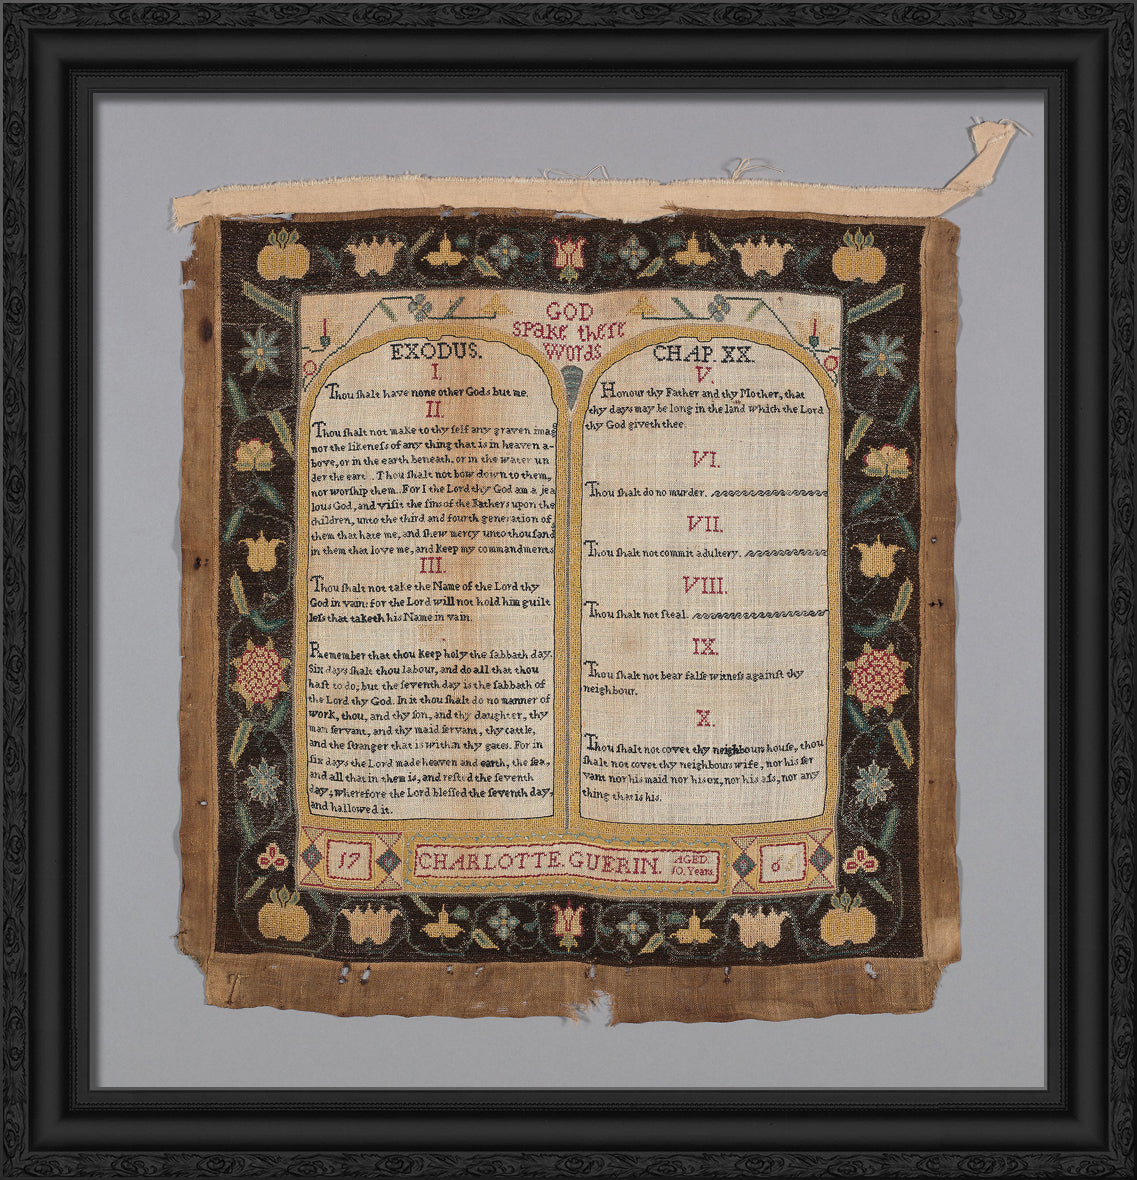 GOD
spake these
words
EXODUS.
I.
Thou ſhalt have none other Gods but me.
II.
Thou ſhalt not make to thy ſelf any graven imag
nor the likeneſs of any thing that is in heaven a-
bove, or in the earth beneath. or in the water un
der the eart. Thou ſhalt not bow down to them,
nor worſhip them. For I the Lord thy God am a jea
lous God, and viſit the ſins of the Fathers upon the
children, unto the third and fourth generation of
them that hate me, and ſhew mercy unto thouſand
in them that love me, and keep my commandments
III.
Thou ſhalt not take the Name of the Lord thy
God in vain: for the Lord will not hold him guilt
leſs that taketh his Name in vain.
Remember that thou keep holy the ſabbath day.
Six days ſhalt thou labour, and do all that thou
haſt to do; but the ſeventh day is the ſabbath of
the Lord thy God. In it thou ſhalt do no manner of
work, thou, and thy ſon, and thy daughter, thy
man ſervant, and thy maid ſervant, thy cattle,
and the ſtranger that is within thy gates. For in
ſix days the Lord made heaven and earth, the ſea,
and all that in them is, and reſted the ſeventh
day; wherefore the Lord bleſſed the ſeventh day,
and hallowed it.
CHAP. XX.
V.
Honour thy Father and thy Mother, that
thy days may be long in the land which the Lord
thy God giveth thee.
VI.
Thou ſhalt do no murder.
VII.
Thou ſhalt not commit adultery.
VIII.
Thou ſhalt not ſteal.
IX.
Thou ſhalt not bear falſe witneſs againſt thy
neighbour.
X.
Thou ſhalt not covet thy neighbours houſe, thou
ſhalt not covet thy neighbours wife, nor his ſer
vant nor his maid nor his ox, nor his aſs, nor any
thing that is his.
17
CHARLOTTE. GUERIN.
AGED.
10. Years.
6